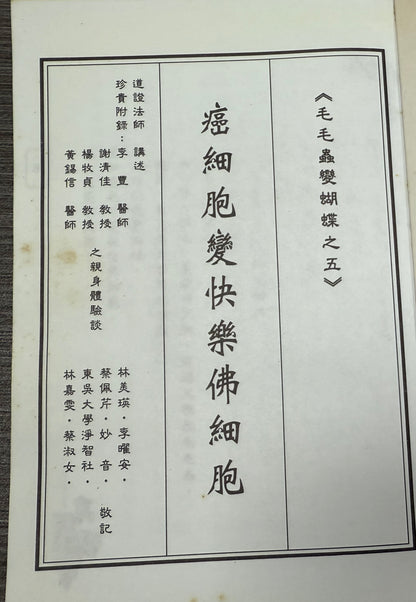 《毛毛蟲變蝴蝶之五》
癌細胞變快樂佛細胞
道證法師 講述
珍貴附錄：李 豐 醫師
謝清佳 教授
楊牧貞 教授
黃錫信 醫師
之親身體驗談
林美瑛．李曜安．
蔡佩芹．妙 音．
東吳大學淨智社．
林嘉雯．蔡淑女．
敬記